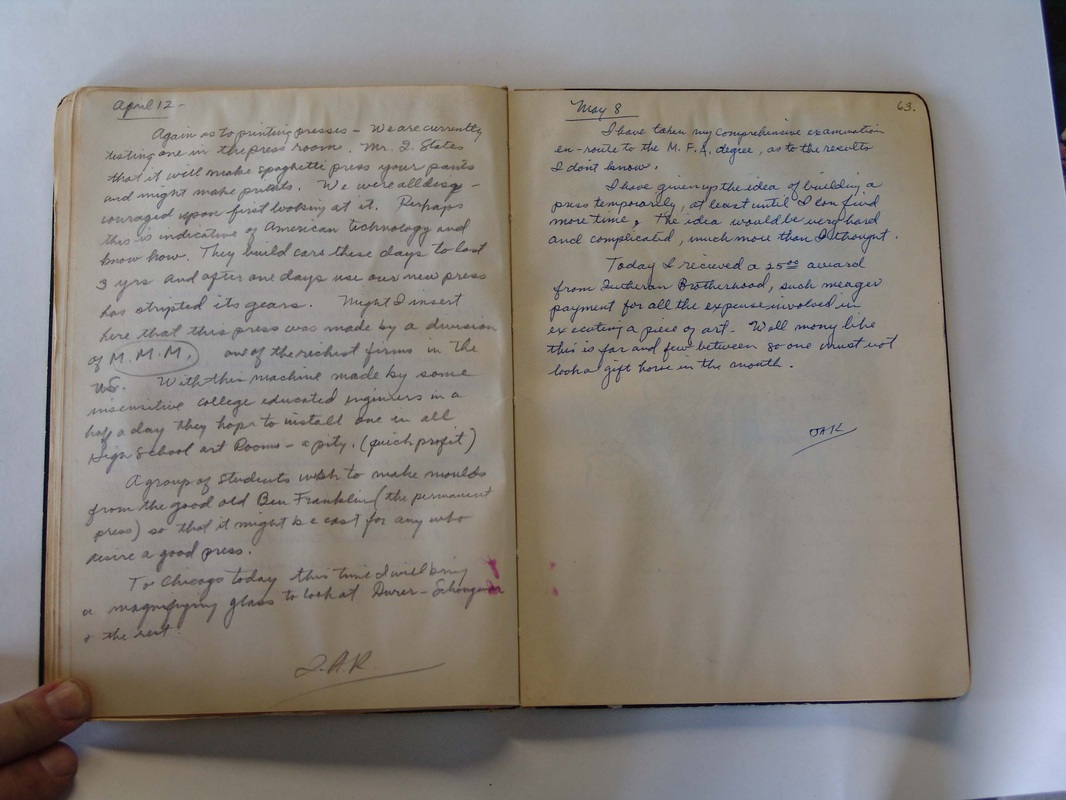 April 12 -
Again as to printing presses - We are currently
testing one in the press room. Mr. L. States
that it will make spaghetti press your pants
and might make prints. We were all disg -
couraged upon first looking at it. Perhaps
this is indicative of American technology and
know how. They build cars these days to last
3 yrs and after one days use our new press
has stripted its gears. Might I insert
here that this press was made by a division
of M. M. M. one of the richest firms in the
US. With this machine made by some
insensitive college educated engineers in a
half a day they hope to install one in all
High School art Rooms - a pity. (quick profit)
A group of students wish to make moulds
from the good old Ben Franklin (the permanent
press) so that it might be cast for any who
desire a good press.
To Chicago today this time I will bring
a magnifying glass to look at Durer - Schongauer
& the rest
J.A.R.
May 8
63.
I have taken my comprehensive examination
en-route to the M. F. A. degree, as to the results
I don't know.
I have given up the idea of building a
press temporarily, at least until I can find
more time. The idea would be very hard
and complicated, much more than I thought.
Today I recieved a 25.00 award
from Lutheran Brotherhood, such meager
payment for all the expense involved in
executing a piece of art. Well mony like
this is far and few between so one must not
look a gift horse in the mouth.
JAR